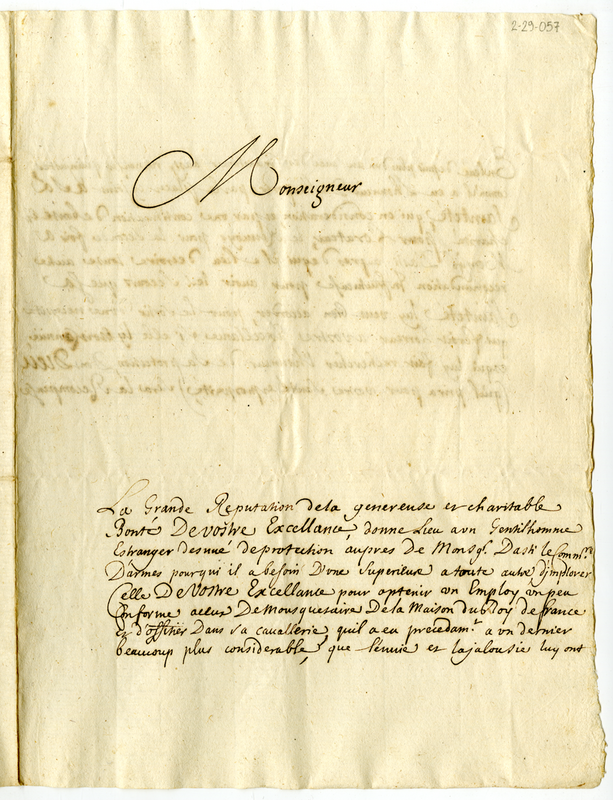 2-29-057
Monseigneur
La Grande Reputation dela genereuse et charitable
Bonté De vostre Excellance, donne Lieu a vn Gentilhomme
Estranger desnué de protection aupres de Monsgr. Dasti le Comm.re
D'armes pourqui il a besoin D'vne Superieure a toute autre d'jmplorer
Celle De Vostre Excellance pour optenir vn Employ vn peu
Conforme a ceux De Mousquetaire De la Maison du Roy de france
Et d'offitier Dans sa cavallerie, qu'il a eu precedam.t a vn dernier
beaucoup plus considerable, que l'enuie et la jalousie luy ont